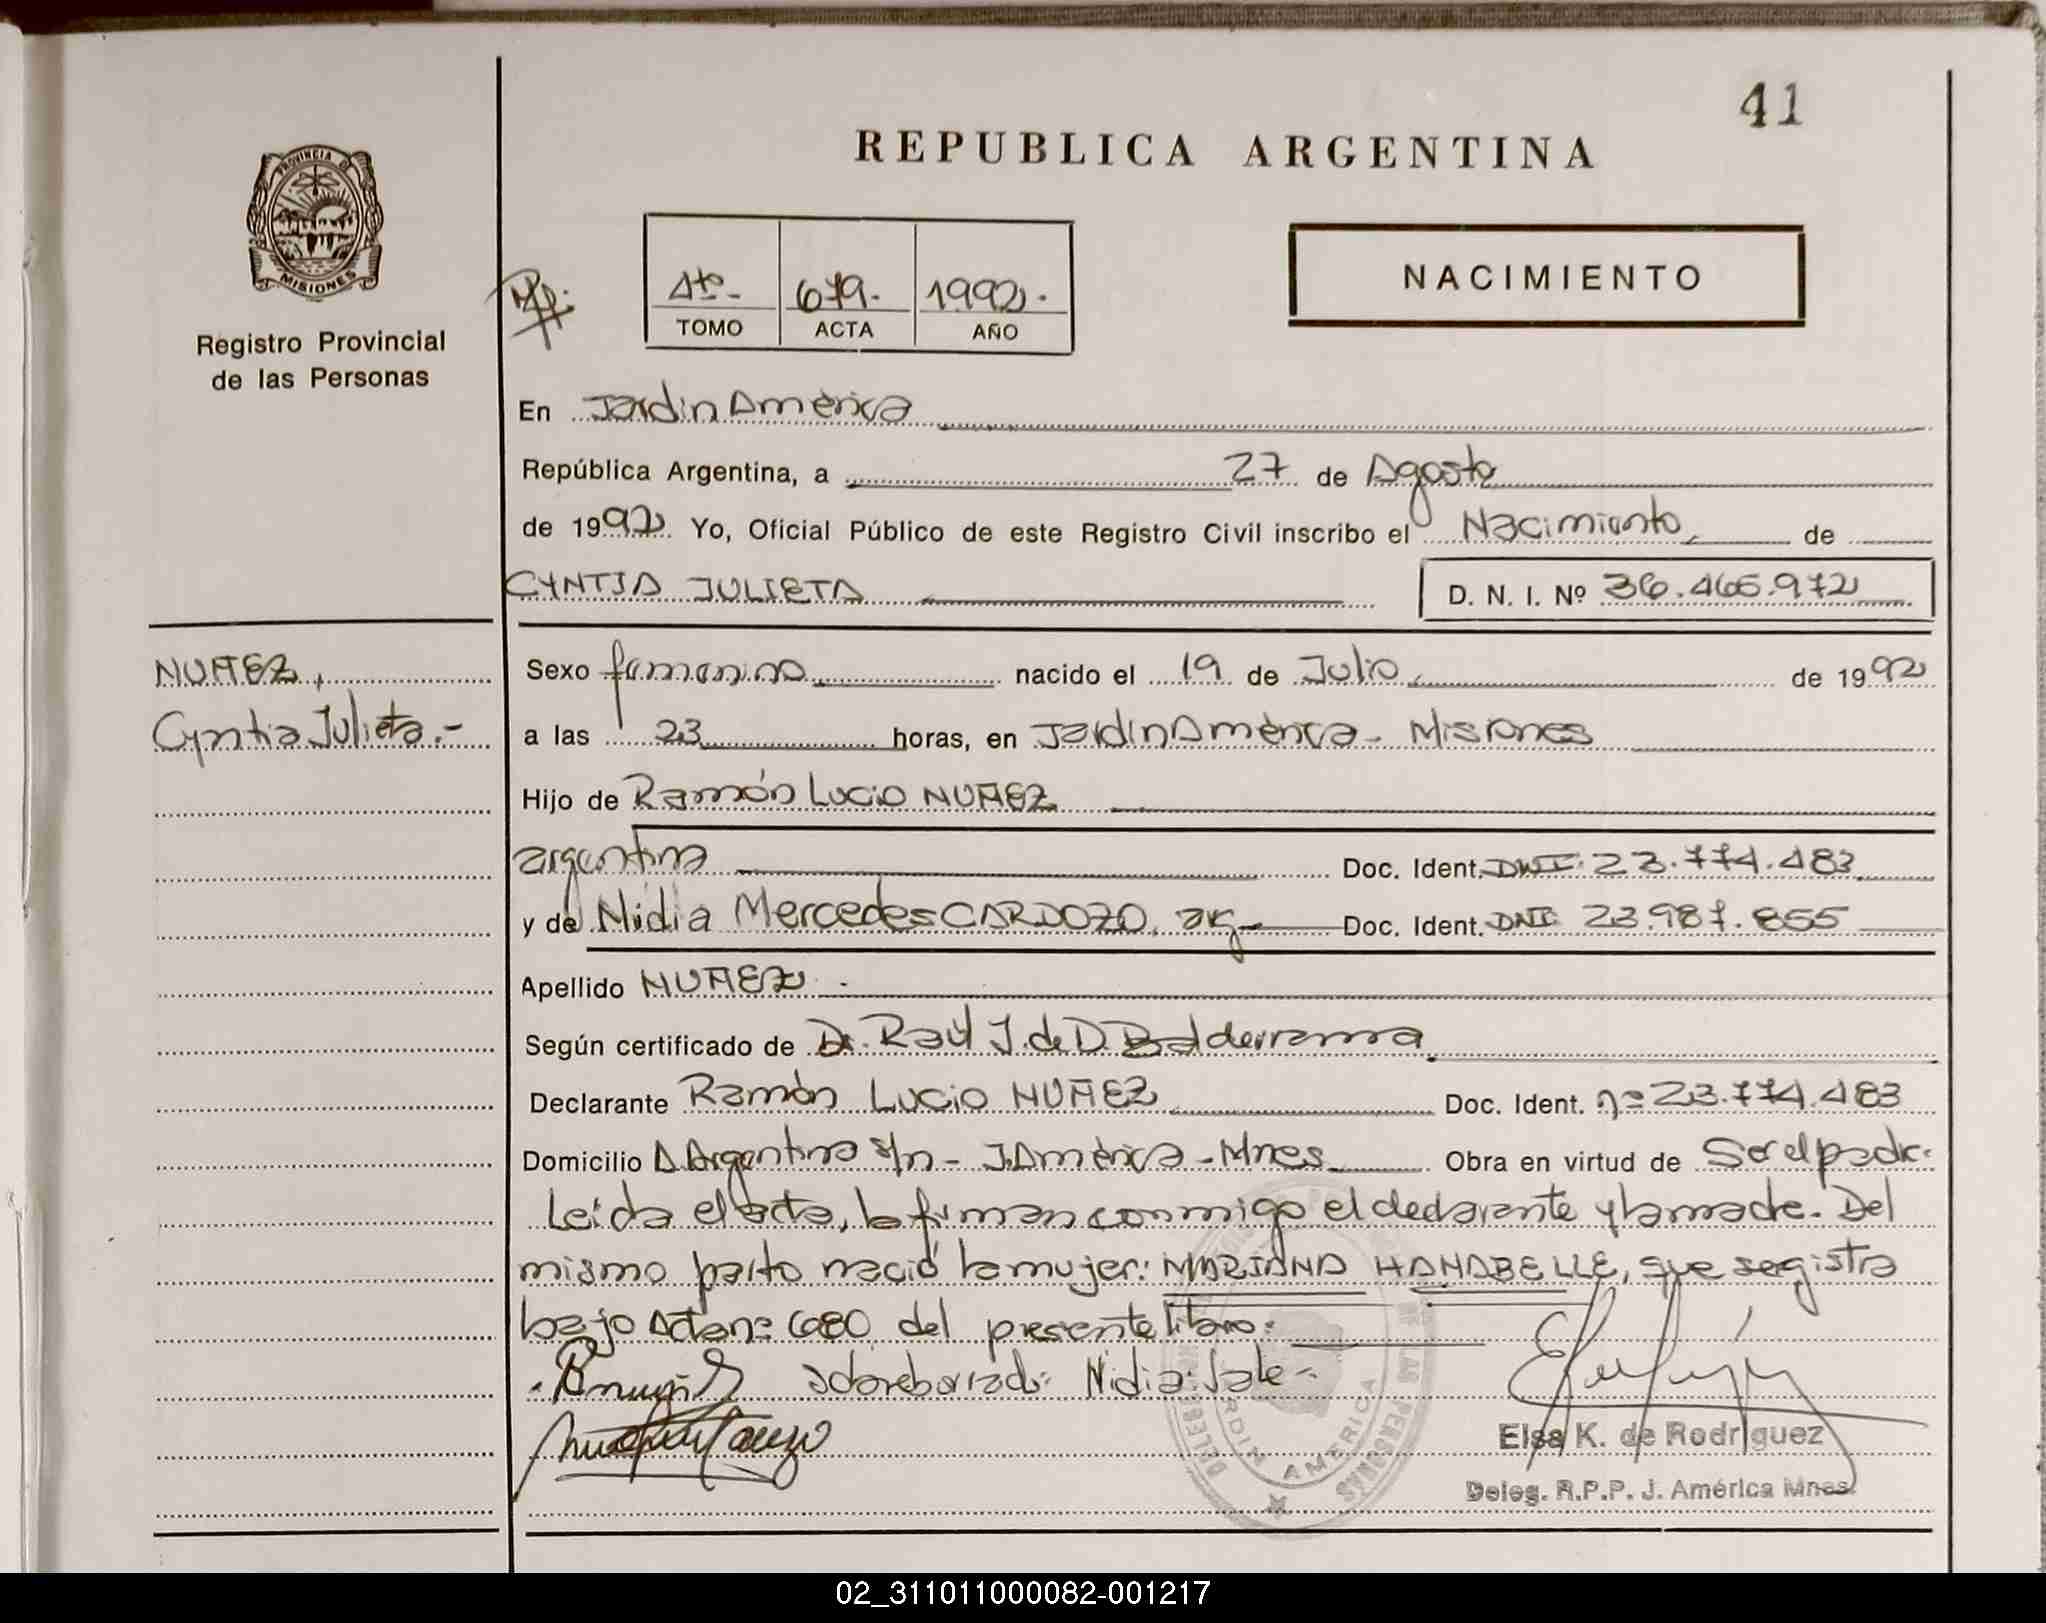 41
REPUBLICA ARGENTINA
PROVINCIA DE
MISIONES
Registro Provincial
de las Personas
4to- 679.- 1992.-
TOMO ACTA AÑO
NACIMIENTO
En Jardín América
República Argentina, a 27 de Agosto
de 1992 Yo, Oficial Público de este Registro Civil inscribo el Nacimiento, de
CYNTIA JULIETA D. N. I. Nº 36.465.972
NUÑEZ, Sexo femenino nacido el 19 de Julio, de 1992
Cyntia Julieta.- a las 23 horas, en Jardín América - Misiones
Hijo de Ramón Lucio NUÑEZ
argentina Doc. Ident. DNI: 23.774.483
y de Nidia Mercedes CARDOZO, arg- Doc. Ident. DNI: 23.987.855
Apellido NUÑEZ.-
Según certificado de Dr. Raúl J. de D. Balderrama
Declarante Ramón Lucio NUÑEZ Doc. Ident. nº 23.774.483
Domicilio A. Argentina s/n - J. América - Mnes Obra en virtud de Ser el padre
Leída el acta, la firman conmigo el declarante y la madre. Del
mismo parto nació la mujer: MARIANA HANABELLE, que se gistra
bajo Acta nº 680 del presente libro.
sobreborrado: Nidia: Vale-
DE LAS PERSONAS
JARDIN AMERICA
Elsa K. de Rodriguez
Deleg. R.P.P. J. América Mnes.
02_311011000082-001217